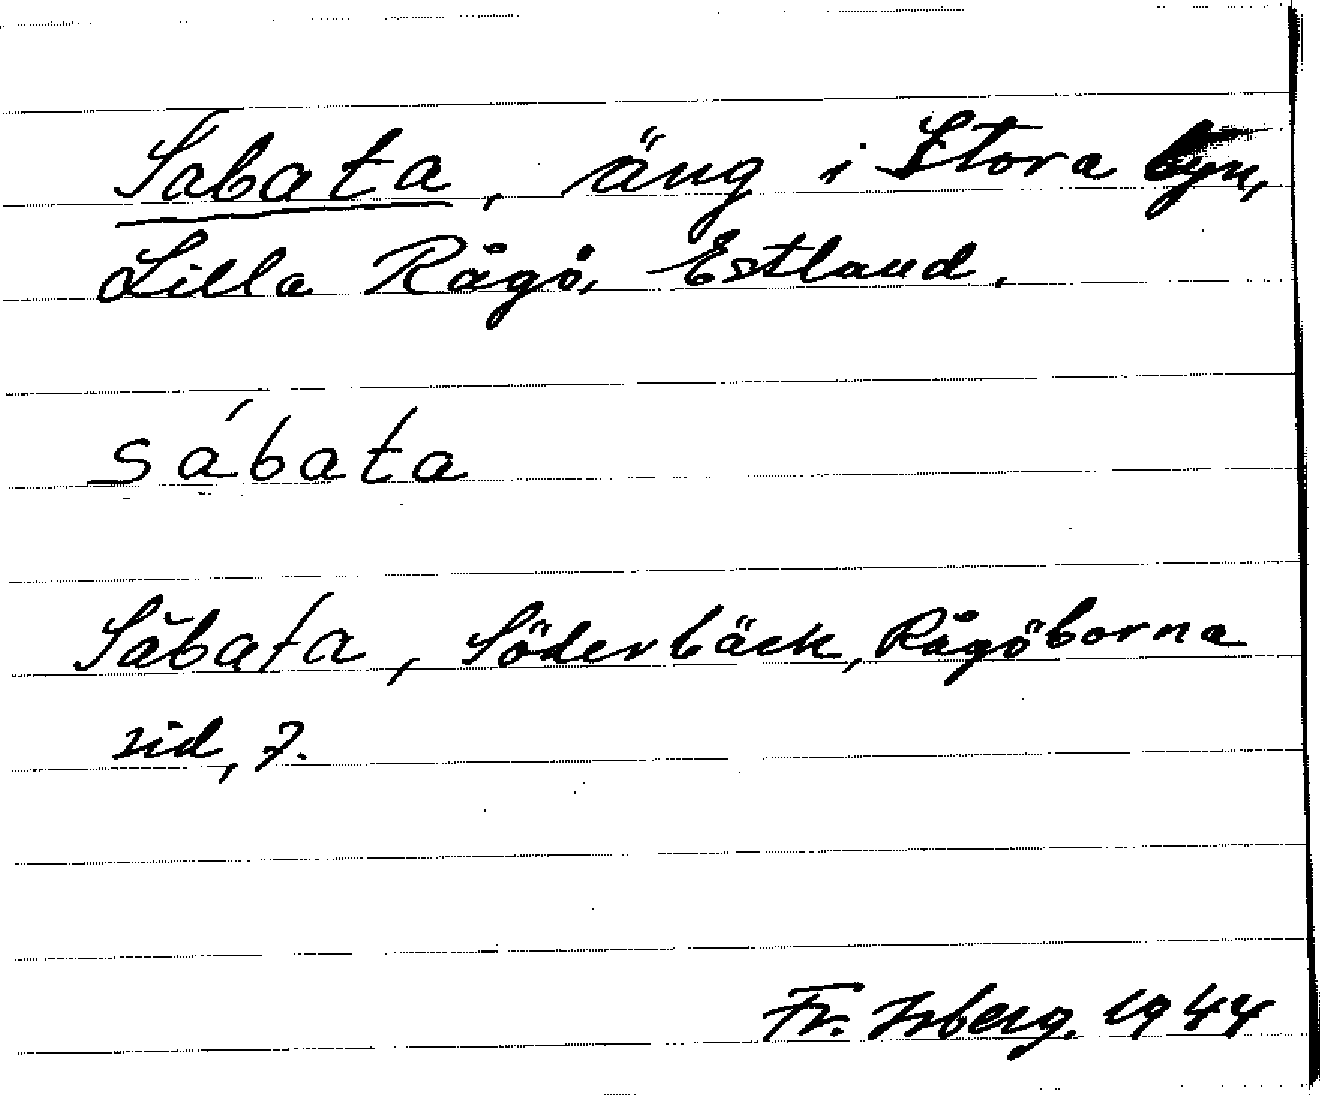 Sabata, äng i Stora byn,
Lilla Rågö, Estland.
sábata
Săbata, Söderbäck, Rågöborna
sid, 7.
Fr. Isberg. 1944